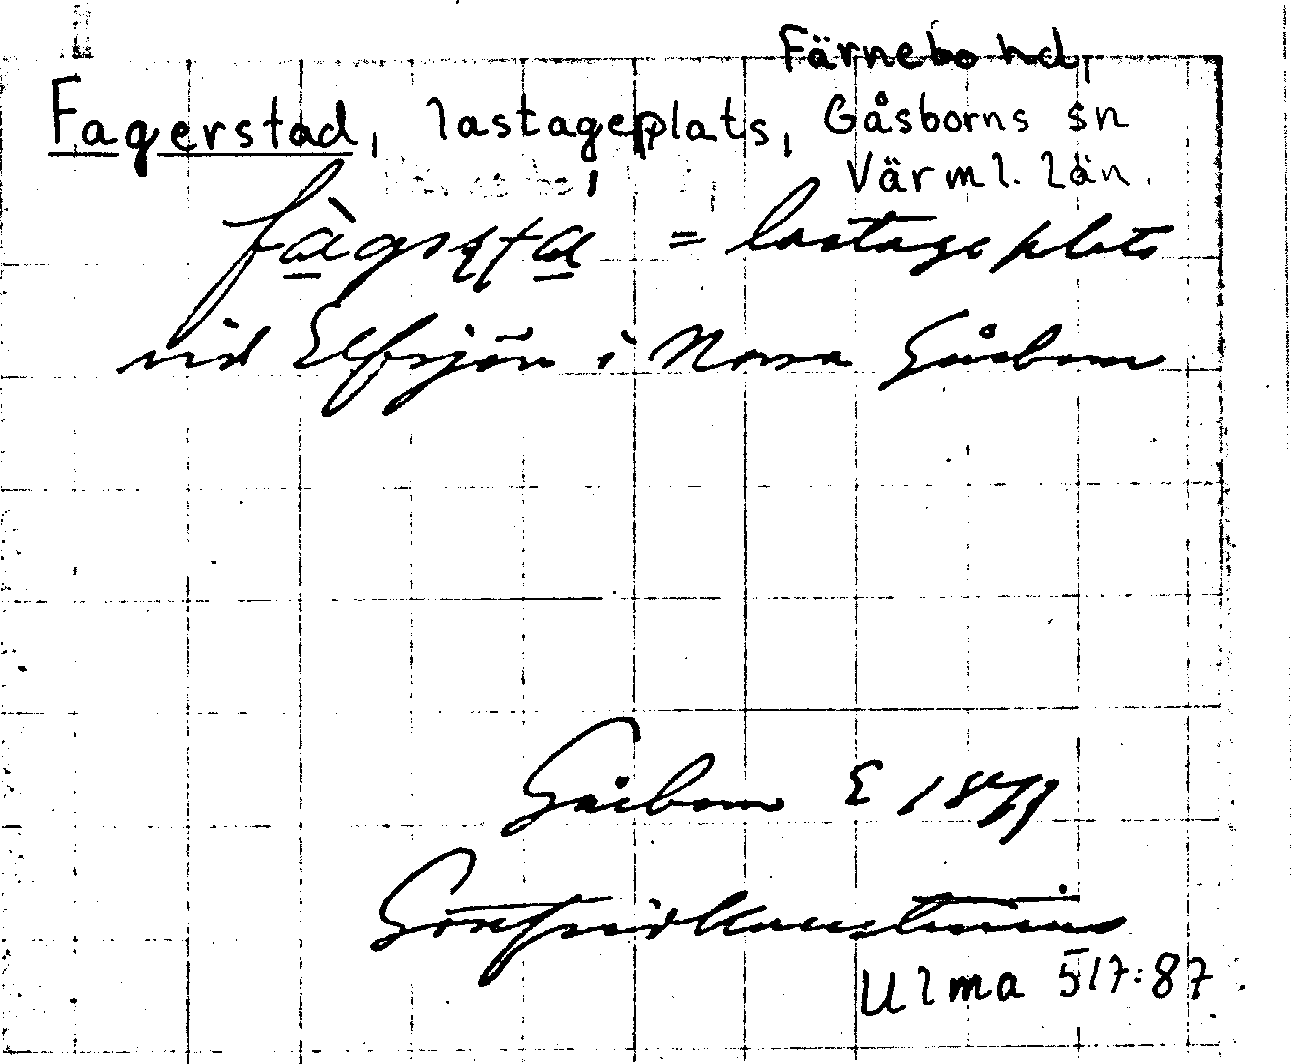 Färnebo hd,
Fagerstad, lastageplats, Gåsborns sn
Värml. län.
= lastageplats
vid Elfsjön i Norra Gåsborn
Gåsborn E 1879
Gottfrid Kallstenius
Ulma 517:87